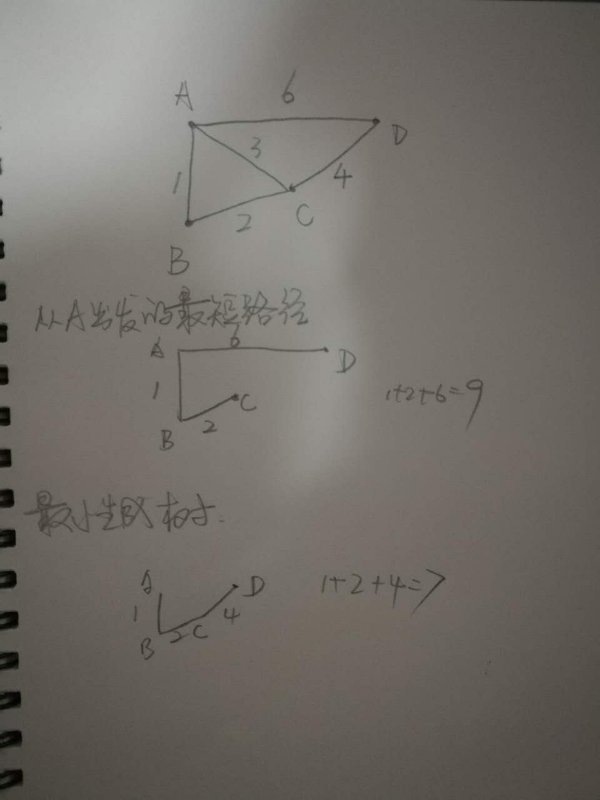 A 6
D
3
1 4
2 C
B
从A出发的最短路径
A 6 D
1 C 1+2+6=9
B 2
最小生成树.
A D 1+2+4=7
1 4
B 2 C